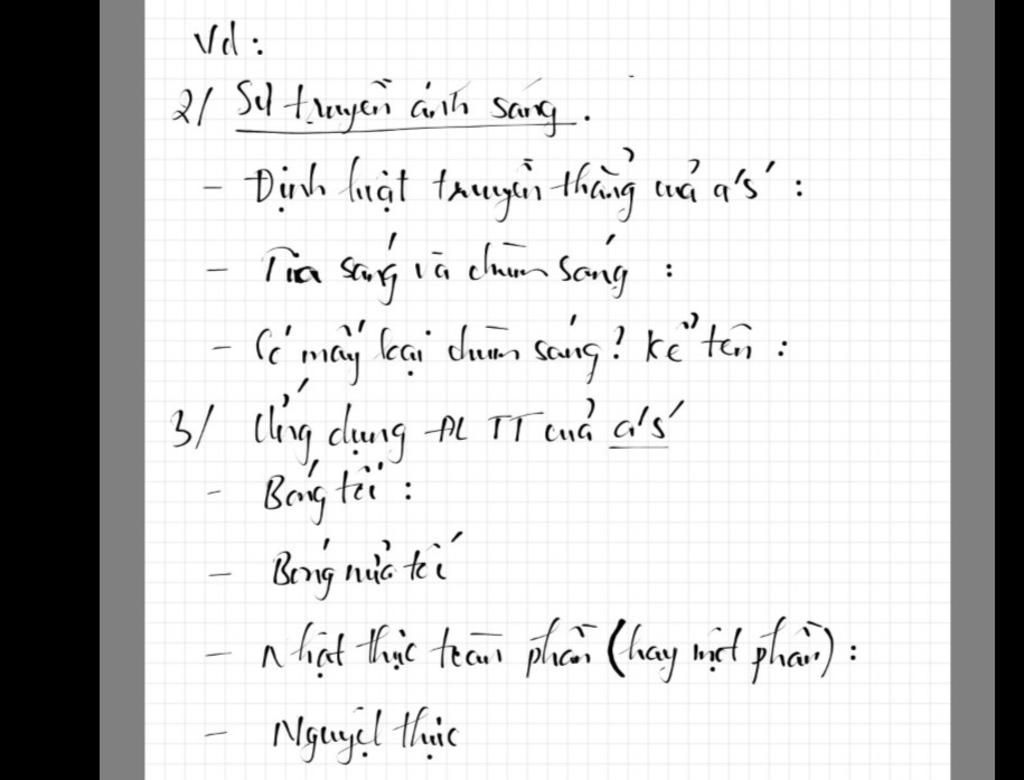 Vd :
2/ Sự truyền ánh sáng .
- Định luật truyền thẳng của a's' :
- Tia sáng và chùm sáng :
- Có mấy loại chùm sáng? Kể tên :
3/ Ứng dụng ĐL TT của a's'
- Bóng tối :
- Bóng nửa tối
- Nhật thực toàn phần (hay một phần) :
- Nguyệt thực